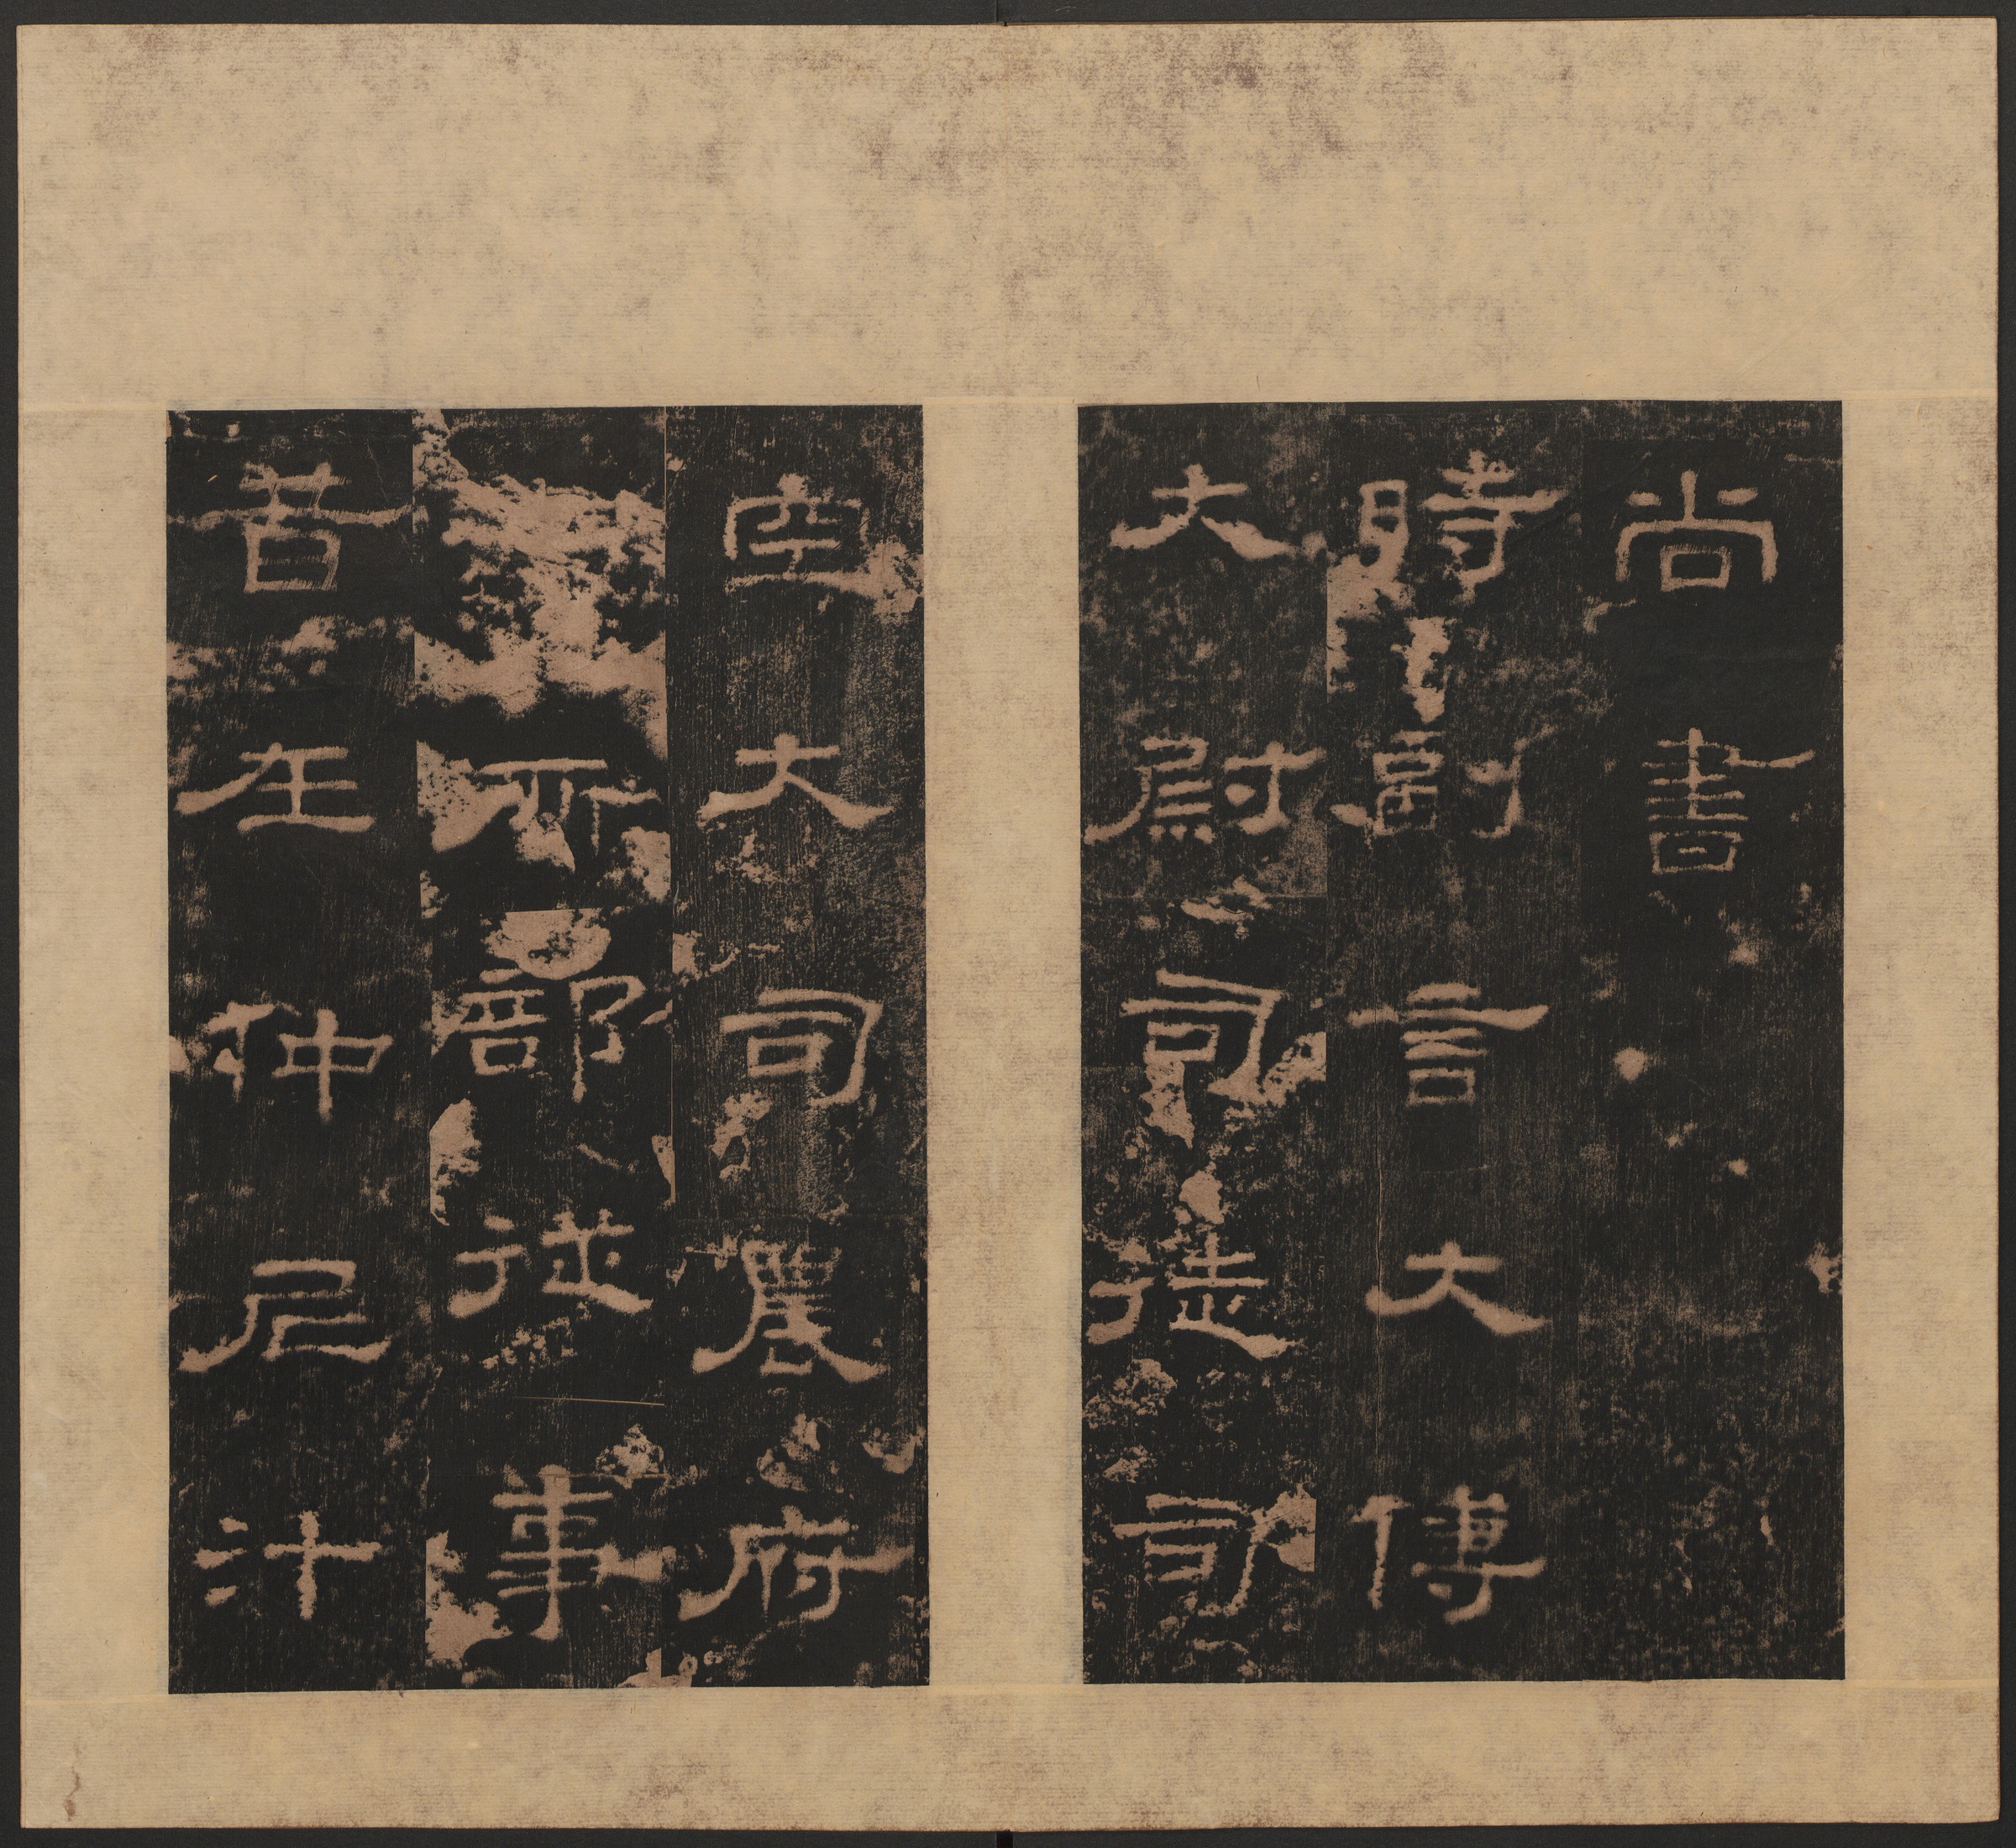 尚書
時副言大傅
大尉司徒司
空大司農府
所部從事
昔在仲尼汁